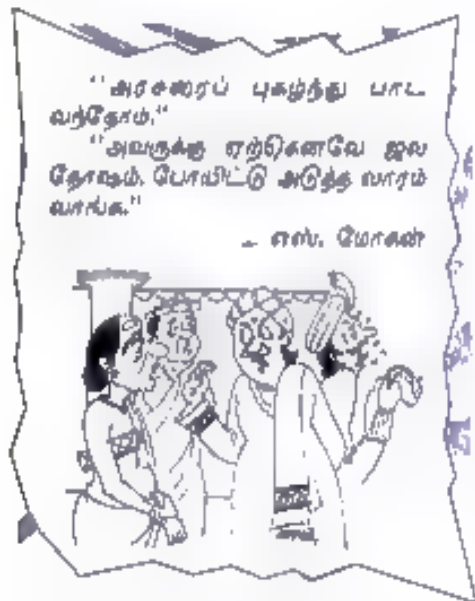 "அரசரைப் புகழ்ந்து பாட
வந்தோம்."
"அவருக்கு ஏற்கெனவே ஜல
தோஷம். போயிட்டு அடுத்த வாரம்
வாங்க."
_ எஸ். மோகன்